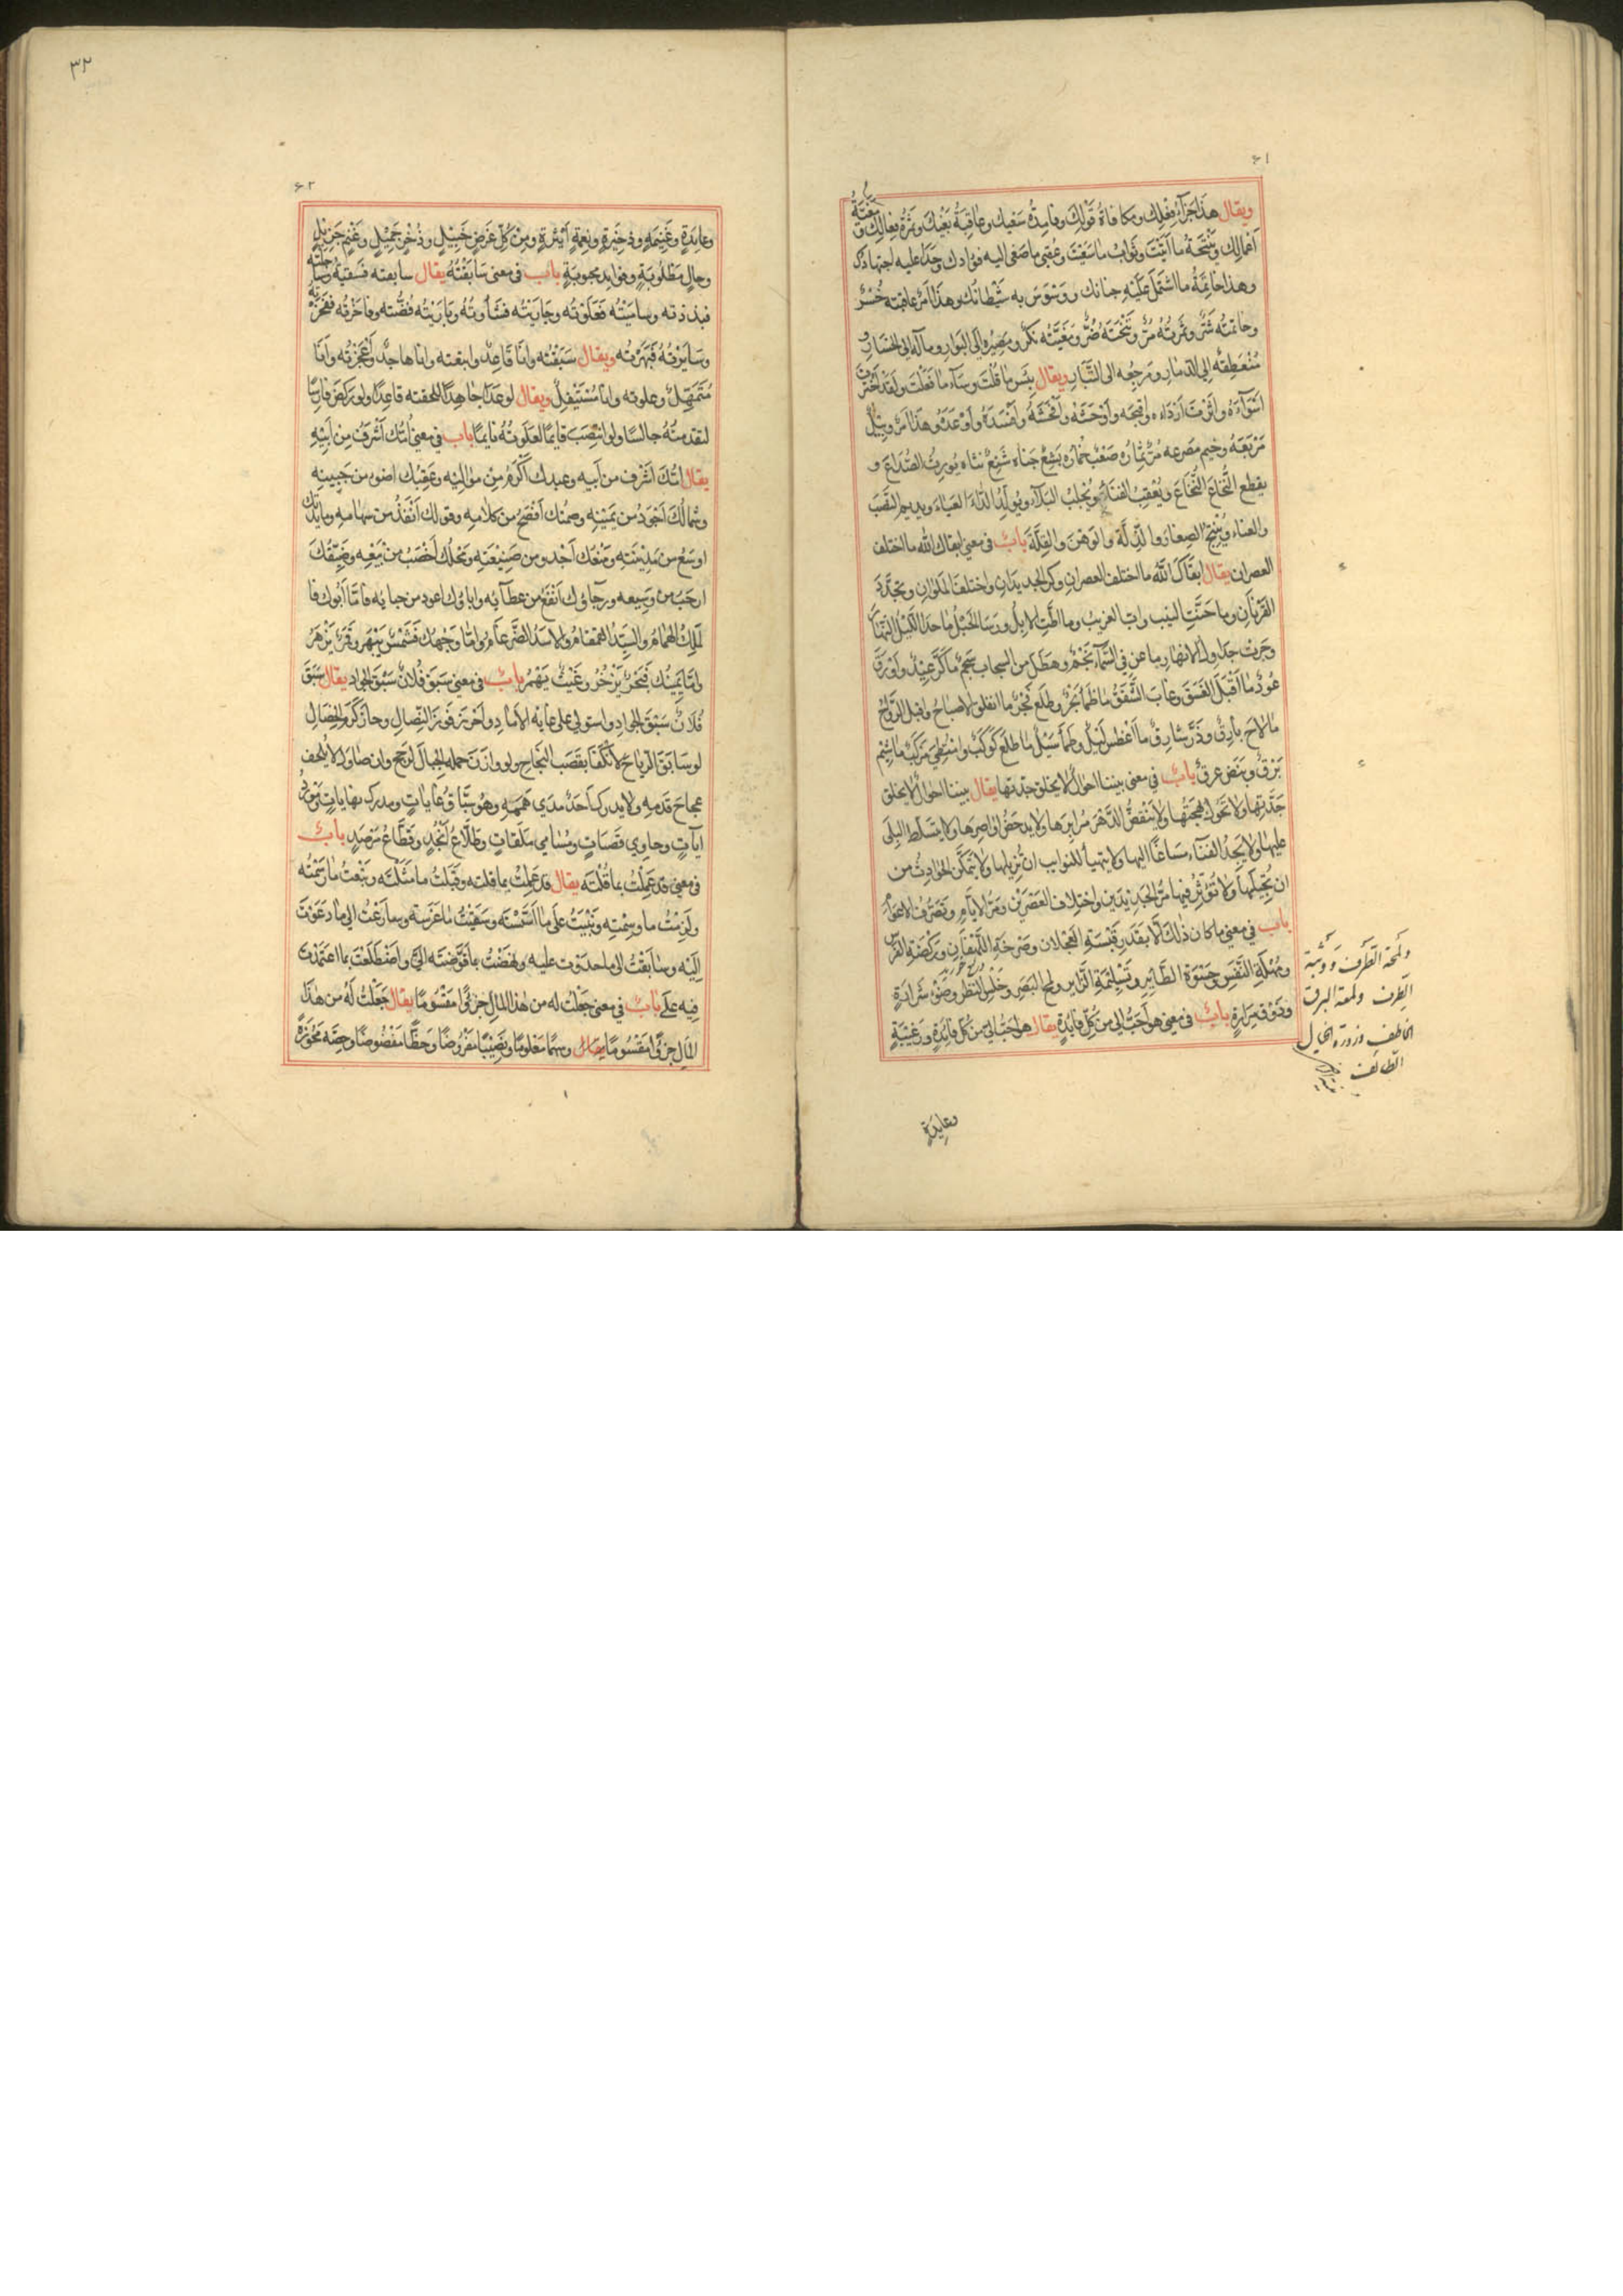 ٦١
ويقال هذا جزآء فعلك ومكافاة قولك وفايدة سعيك وعاقبة بغيك وثمرة فعالك و مغبّة
اعمالك ونتيجة ما اتيت وثواب ما سعيت وعقبى ما صغى اليه فؤادك وحدا عليه اجتهادك
وهذا خاتمة ما اشتمل عليه جنانك ووسوس به شيطانك وهذا امر عاقبته خسر
وخاتمته شر وثمرته مر ونتيجته ضر ومغبته نكر ومصيره الى البوار ومآله الى الخسار و
منعطفه الى الدمار ومرجعه الى التبار ويقال بئس ما قلت وسآء ما فعلت ولقد اخترت
اسوآءه واثرت ارداءه واقبحه واوحشه وافحشه وافسده واوغده وهذا امر وبيل
مرتعه وخيم مصرعه مر ثماره صعب خماره بشع جناه شنع نثاه يورث الصداع و
يقطع النخاع ويعقب الفناء ويجلب البلاء ويولد الداء العياء ويديم النصب
والعناء وينتج الصغار والذلة والوهن والقلة باب في معنى ابقاك الله ما اختلف
العصران يقال ابقاك الله ما اختلف العصران وكر الجديدان واختلف الملوان وتجدد
القرنان وما حنت النيب واب الغريب وما اطت الابل ورسا الجبل ما حدا الليل النهار
وجرت جداول الانهار وما عن في السمآء نجم وهطل من السحاب سجم ما كر عيد واورق
عود ما اقبل الغسق وغاب الشفق ما طما بحر وطلع فجر ما انفلق الاصباح واقبل الرواح
ما لاح بارق وذر شارق ما اغطس ليل وطمأ سيل ما طلع كوكب وامتطي مركب ما شيم
برق ونبض عرق باب في معنى بيننا احوال لا يخلق جدتها يقال بيننا احوال لا يخلق
جدتها ولا تحول بهجتها ولا ينقض الدهر مرايرها ولا يدحض اواصرها ولا يتسلط البلى
عليها ولا يجد الفنآء مساغا اليها ولا يتهيأ للنوايب ان تزيلها ولا يتمكن الحوادث من
ان يحيلها ولا تؤثر فيها مر الجديدين واختلاف العصرين ومر الايام وتصرف الاعوام
باب في معنى ما كان ذلك الا بقدر قبسة العجلان وصرخة اللهفان وركضة الفرس
ومهلة النفس وحسوة الطاير وتسليمة الزاير ولمح البصر وخلس النظر وضوء شرارة
وذوق مرارة باب في معنى هو احب الى من كل فايدة يقال هو احب الى من كل فايدة ورغيبة
ولمحة الطرف ووثبة
الطرف ولمعة البرق
الخاطف وزورة الخيال
الطائف
وعايدة
٣٢
٦٢
وعايدة وغنيمة وذخيرة ونعمة اثيرة ومن كل غرض جبيل وذخر جميل وغنم جزيل
وحال مطلوبة وفوايد محبوبة باب في معنى سابقته يقال سابقته فسبقته وساجلته
فبذذته وساميته فعلوته وجاريته فشأوته وباريته ففضته وفاخرته ففخرته
وسايرته فبهرته ويقال سبقته وانا قاعد واتبعته وانا هاجد واعجزته وانا
متمهل وعلوته وانا مستفل ويقال لو عدا جاهدا للحقته قاعدا ولو ركض فارسا
لتقدمته جالسا ولو انتصب قايما لعلوته نايما باب في معنى انك اشرف من ابيه
يقال انك اشرف من ابيه وعبدك اكرم من مواليه وعقبك اضوء من جبينه
وشمالك اجود من يمينه وصمتك افصح من كلامه وقولك انفذ من سهامه ومايدتك
اوسع من مدينته ومنعك اجدو من صنيعته ومحلك اخصب من ريعه وضيقك
ارحب من وسيعه ورجاؤك انفع من عطآئه واباؤك اعود من حبايه فاما ابوك فا
لملك الهمام والسيد القمقام والاسد الضرغام واما وجهك فشمس يبهر وقمر يزهر
واما يمينك فبحر يزخر وغيث ينهمر باب في معنى سبق فلان سبق الجواد يقال سبق
فلان سبق الجواد واستولى على غاية الآماد واحرز فوز النصال وحاز كرم الخصال
لو سابق الرياح لانكفا بقصب النجاح ولو وازن حمله الجبال لرجح وان صاوله لا يلحق
عجاج قدمه ولا يدرك احد مدى هممه وهو سباق غايات ومدرك نهايات ومولى
ايآت وحاوي قصبات ومسامي ملقات وطلاع انجد وقطاع مرصد باب
في معنى قد عملت بما قلته يقال قد عملت بما قلته وقبلت ما مثلته وتبعت ما رسمته
ولزمت ما وسمته وبنيت على ما اسسته وسقيت ما غرسته وسارعت الى ما دعوت
اليه وسابقت الى ما حدوت عليه ونهضت بما فوضته الي واضطلعت بما اعتمدت
فيه علي باب في معنى جعلت له من هذا المال جزؤا مقسوما يقال جعلت له من هذا
المال جزؤا مقسوما وسهما معلوما ونصيبا مفروضا وحظا مفضوضا وحصة محوزة